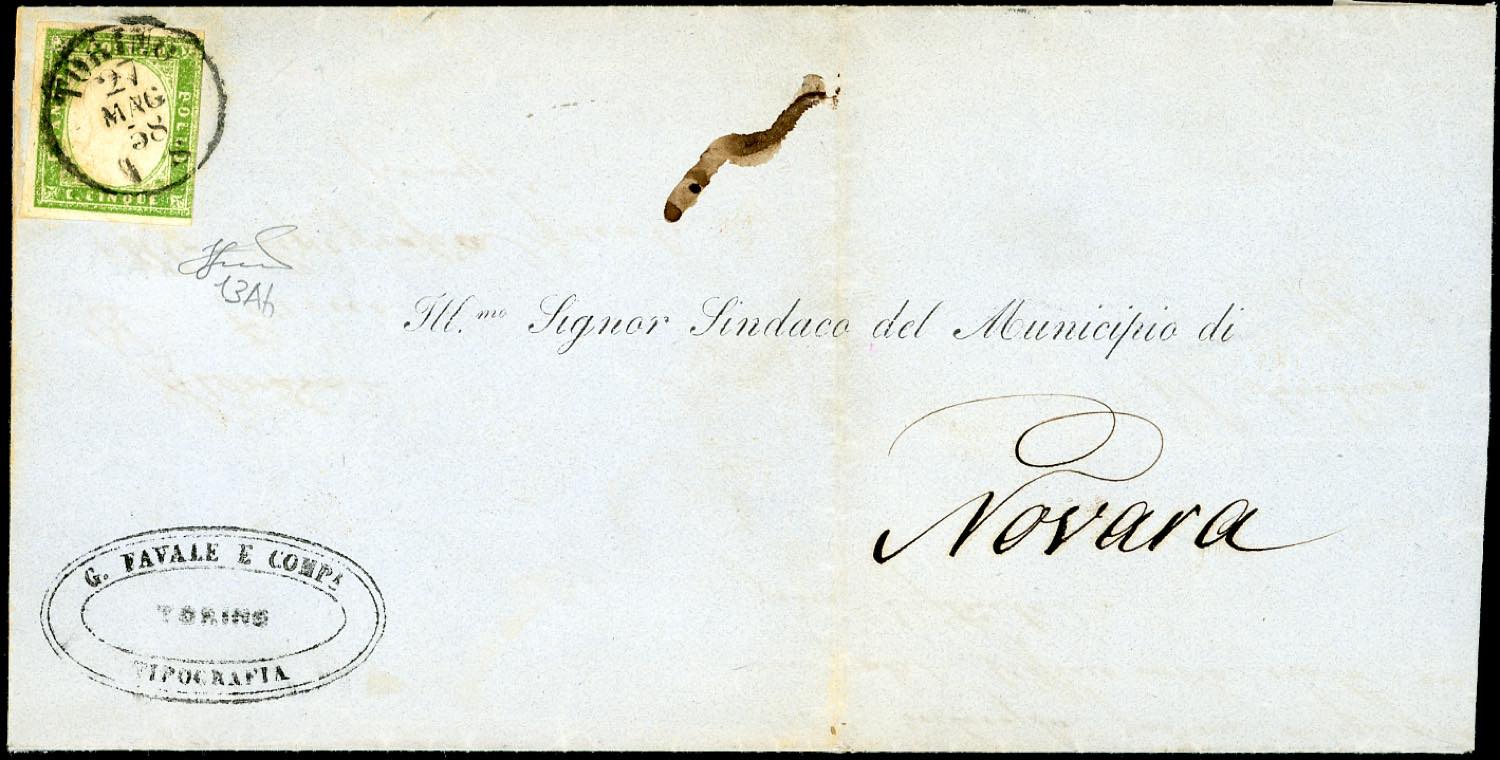 TORINO
27
MAG
58
BOLLO
C. CINQUE
13Ab
Ill.mo Signor Sindaco del Municipio di
Novara
G. FAVALE E COMPA
TORINO
TIPOGRAFIA